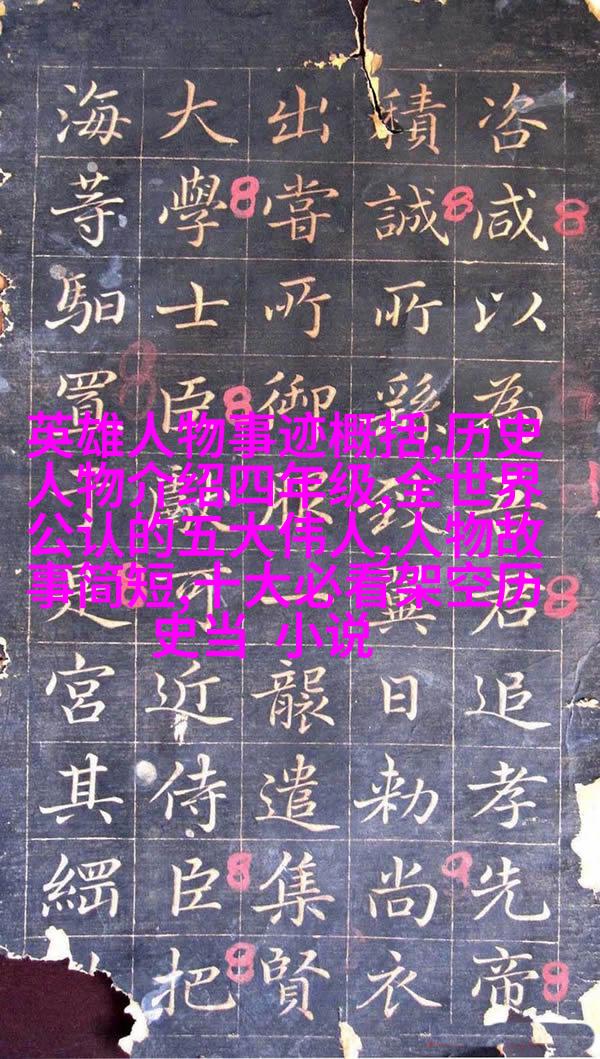 咨咸以為吾君追孝先帝
積誠所致異日勑尚衣
出嘗所御一襲遣集賢
大學士臣可近侍臣把
海等馹置宮其
英雄人物事迹概括,历史
人物介绍四年级,全世界
公认的五大伟人,人物故
事简短,十大必看架空历
史当 小说